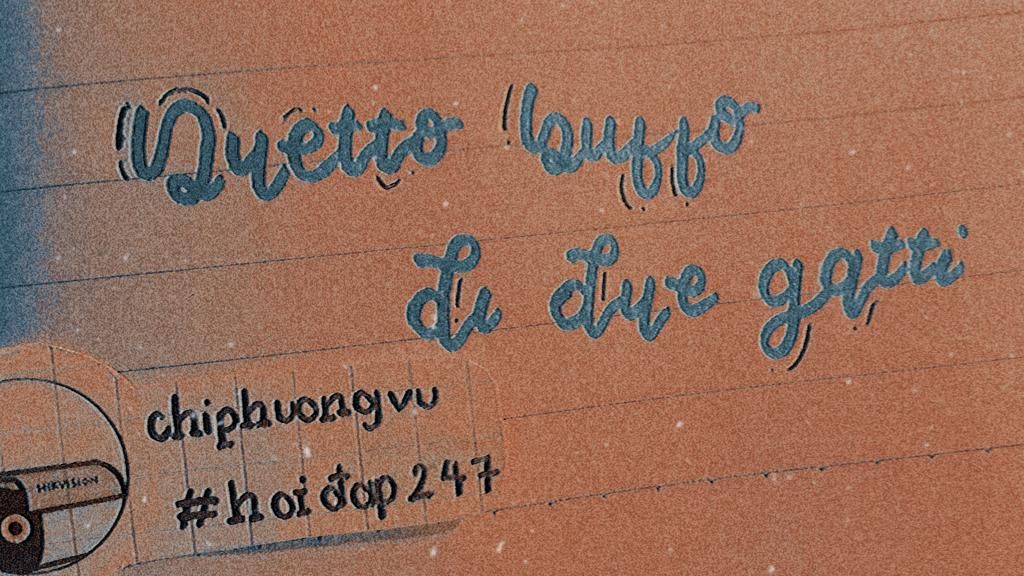 Duetto buffo
di due gatti
chiphuongvu
#hoi đap 247
HIKVISION